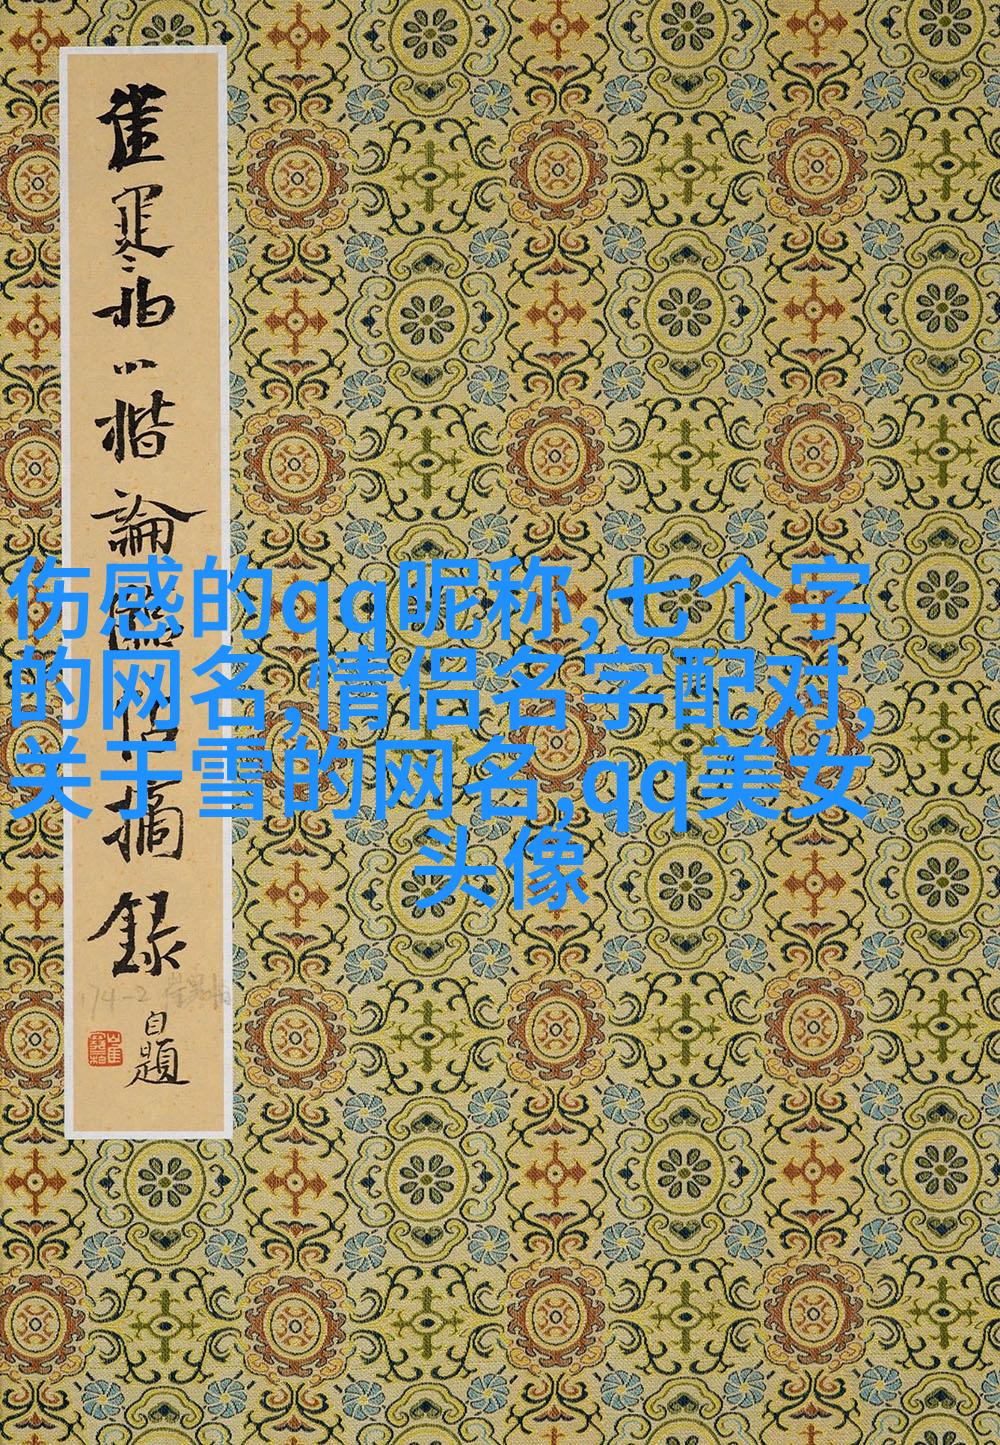 崔寒柏小楷論臨帖摘錄
自題
174-2
伤感的qq昵称,七个字
的网名,情侣名字配对,
关于雪的网名,qq美女
头像